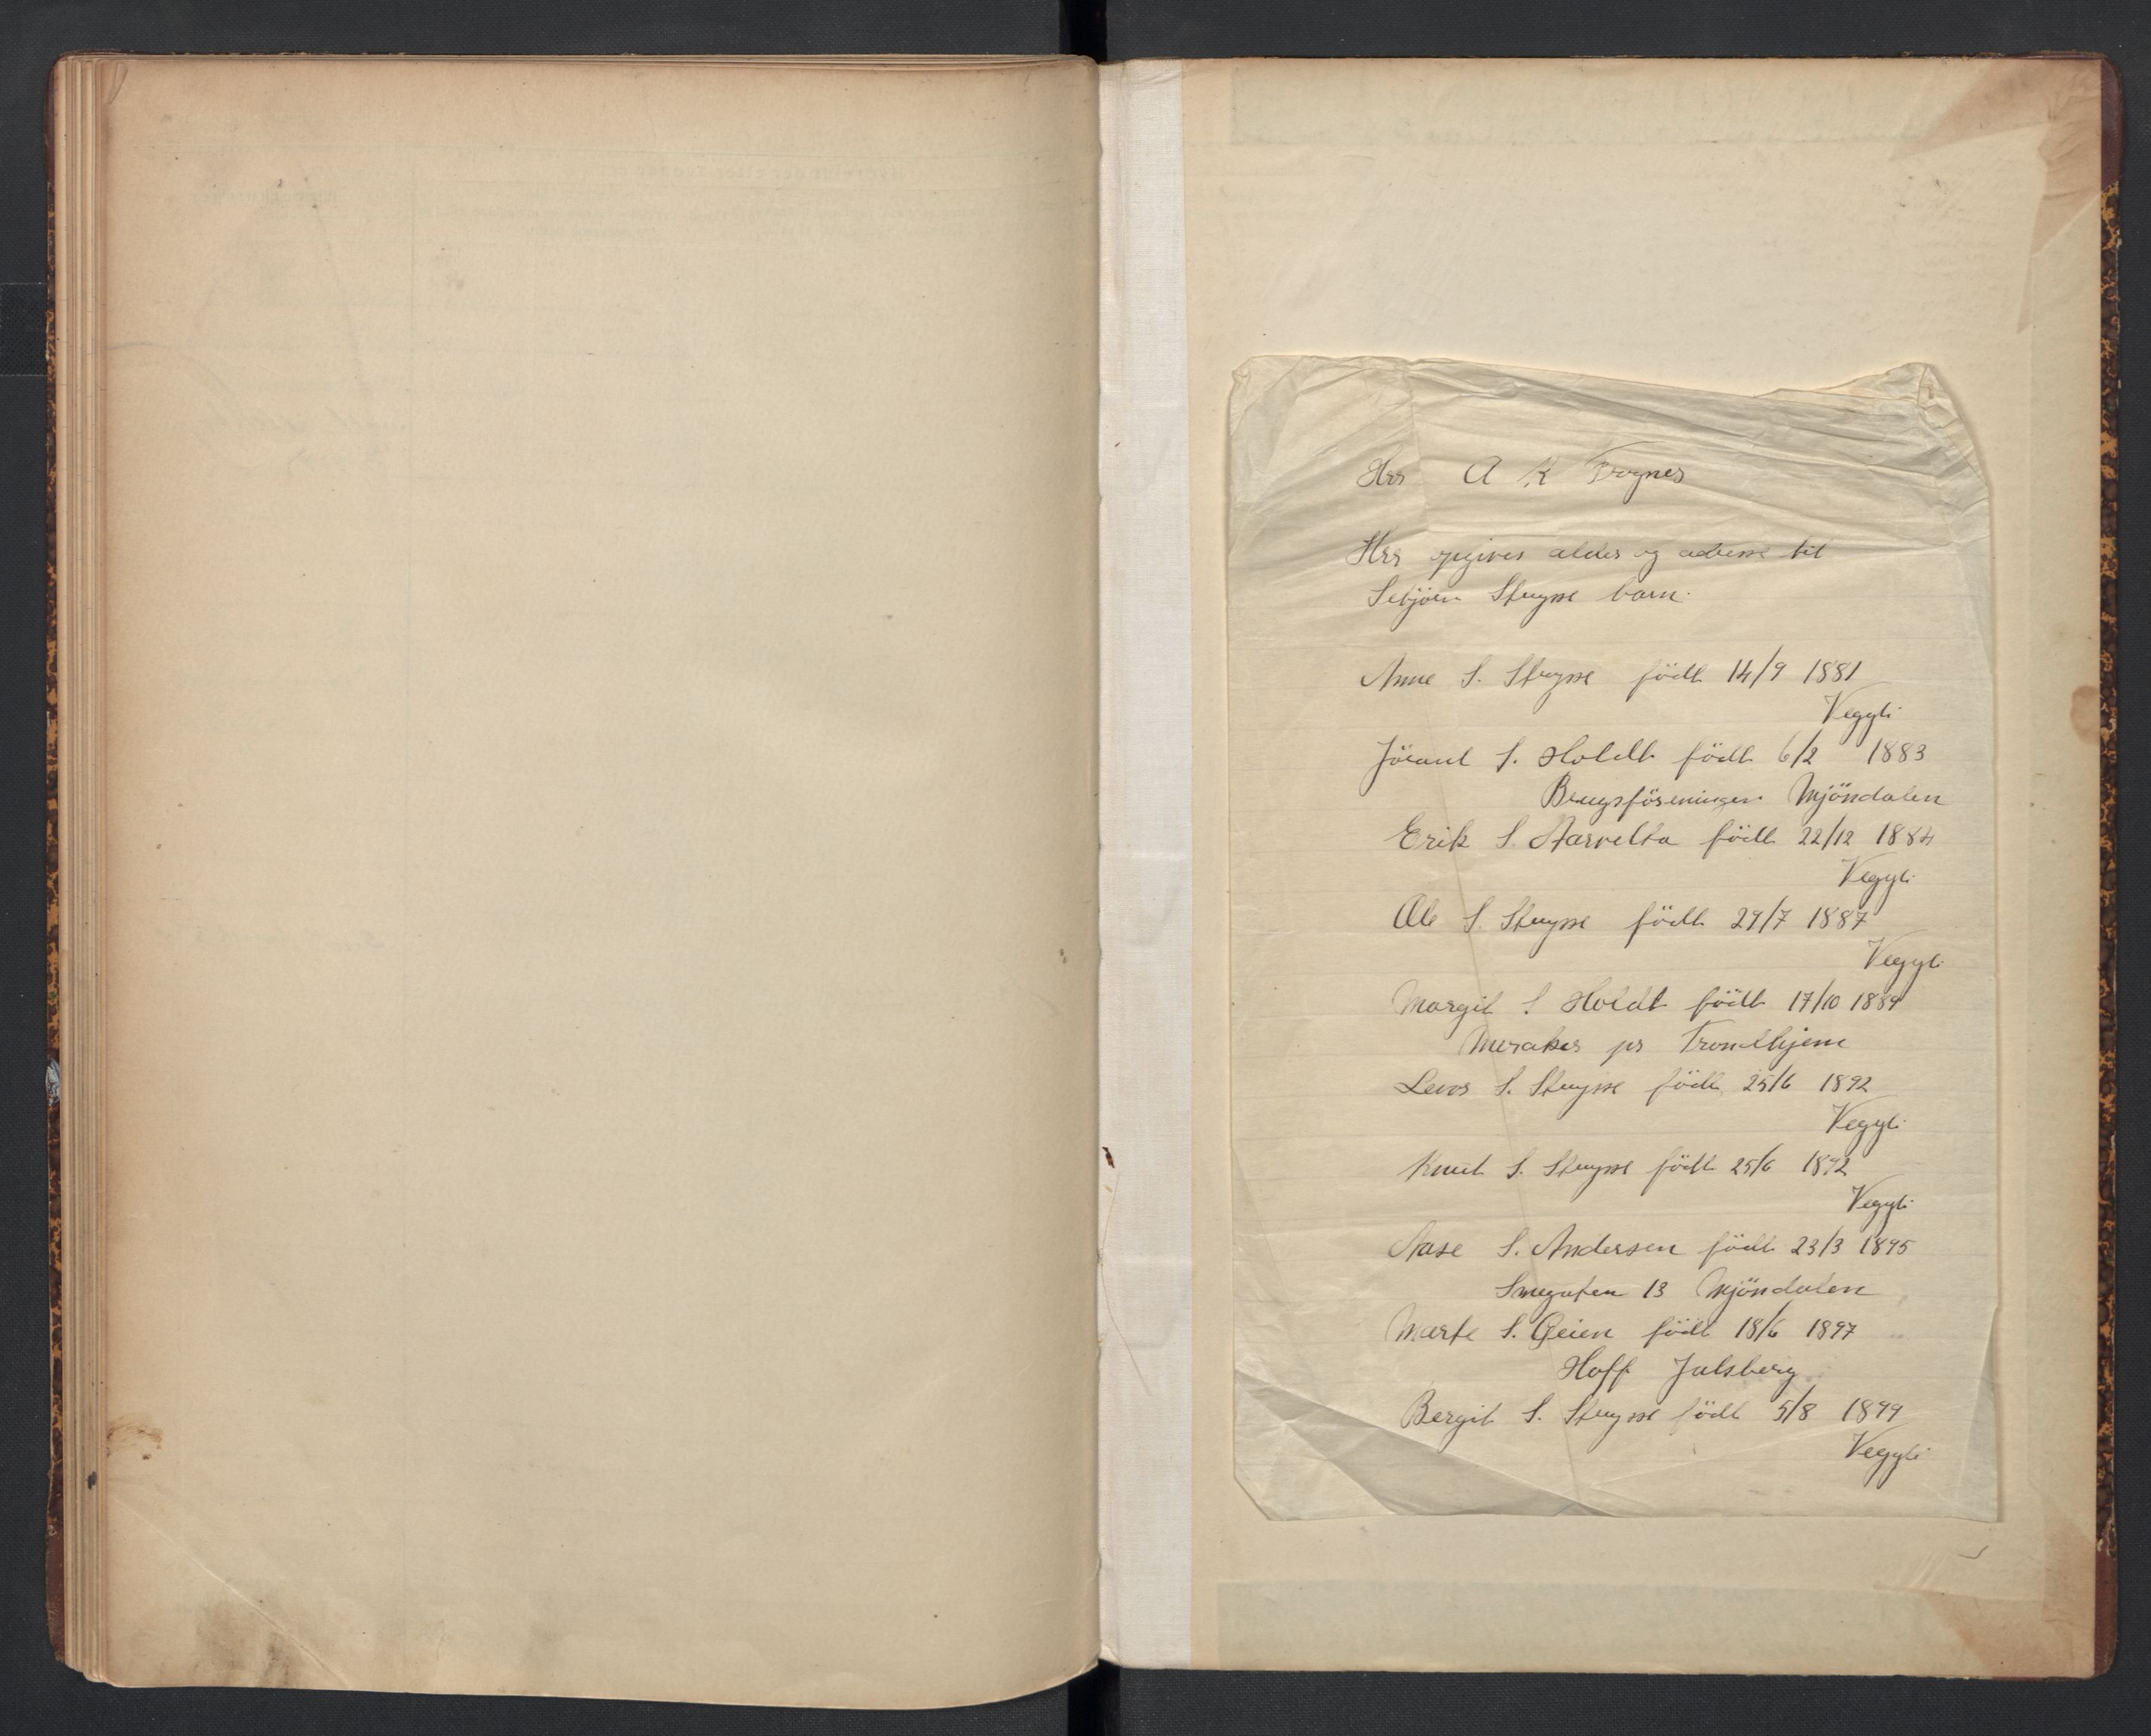 Her A K Frognes
Her opgives alder og adresse til
Sebjörn Stuysse barn.
Anne S. Stuysse födt 14/9 1881
Veggli
Jörand S. Holdt födt 6/2 1883
Brugsföreningen Mjöndalen
Erik S. Aarvelta födt 22/12 1884
Veggli
Ole S. Stuysse födt 29/7 1887
Veggli
Margit S Holdt födt 17/10 1889
Meraker pr Trondhjem
Levor S. Stuysse födt 25/6 1892
Veggli
Knut S. Stuysse födt 25/6 1892
Veggli
Aase S. Andersen födt 23/3 1895
Smegaten 13 Mjöndalen
Marte S. Geien födt 18/6 1897
Hoff Jalsberg
Bergit S. Stuysse födt 5/8 1899
Veggli